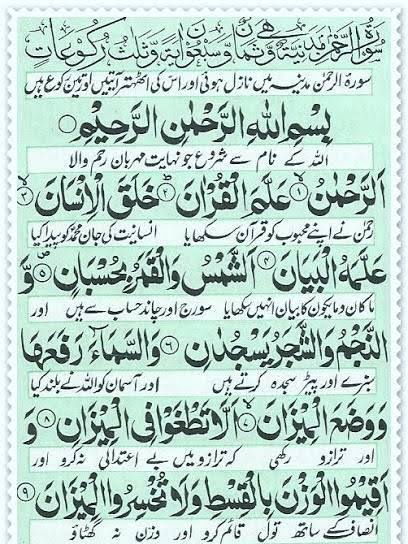 سورة الرحمٰن مدنیة وهی ثمان وسبعون اٰیة وثلٰث رکوعات
سورۃ الرحمٰن مدینہ میں نازل ہوئی اور اس کی اٹھتر آیتیں اور تین رکوع ہیں
بِسْمِ اللهِ الرَّحْمٰنِ الرَّحِیْمِ
اللہ کے نام سے شروع جو نہایت مہربان رحم والا
اَلرَّحْمٰنُ ۙ﴿۱﴾ عَلَّمَ الْقُرْاٰنَ ؕ﴿۲﴾ خَلَقَ الْاِنْسَانَ ۙ﴿۳﴾
رحمٰن نے اپنے محبوب کو قرآن سکھایا انسانیت کی جان محمد کو پیدا کیا
عَلَّمَهُ الْبَیَانَ ﴿۴﴾ اَلشَّمْسُ وَالْقَمَرُ بِحُسْبَانٍ ﴿۵﴾ وَّ
ما کان وما یکون کا بیان انہیں سکھایا سورج اور چاند حساب سے ہیں اور
النَّجْمُ وَالشَّجَرُ یَسْجُدٰنِ ﴿۶﴾ وَالسَّمَآءَ رَفَعَهَا
سبزے اور پیڑ سجدہ کرتے ہیں اور آسمان کو اللہ نے بلند کیا
وَوَضَعَ الْمِیْزَانَ ۙ﴿۷﴾ اَلَّا تَطْغَوْا فِی الْمِیْزَانِ ﴿۸﴾ وَ
اور ترازو رکھی کہ ترازو میں بے اعتدالی نہ کرو اور
اَقِیْمُوا الْوَزْنَ بِالْقِسْطِ وَلَا تُخْسِرُوا الْمِیْزَانَ ﴿۹﴾
انصاف کے ساتھ تول قائم کرو اور وزن نہ گھٹاؤ